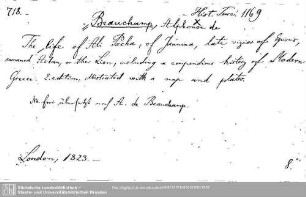 718.
Hist. Turc. 1169
Beauchamp, Alphonse de
The life of Ali Pacha, of Janina, late vizier of Epirus,
surnamed Aslan, or the Lion, including a compendious history of Modern
Greece. 2. edition, illustrated with a map and plates.
A. de Beauchamp.
London, 1823.
8°
Sächsische Landesbibliothek -
Staats- und Universitätsbibliothek Dresden